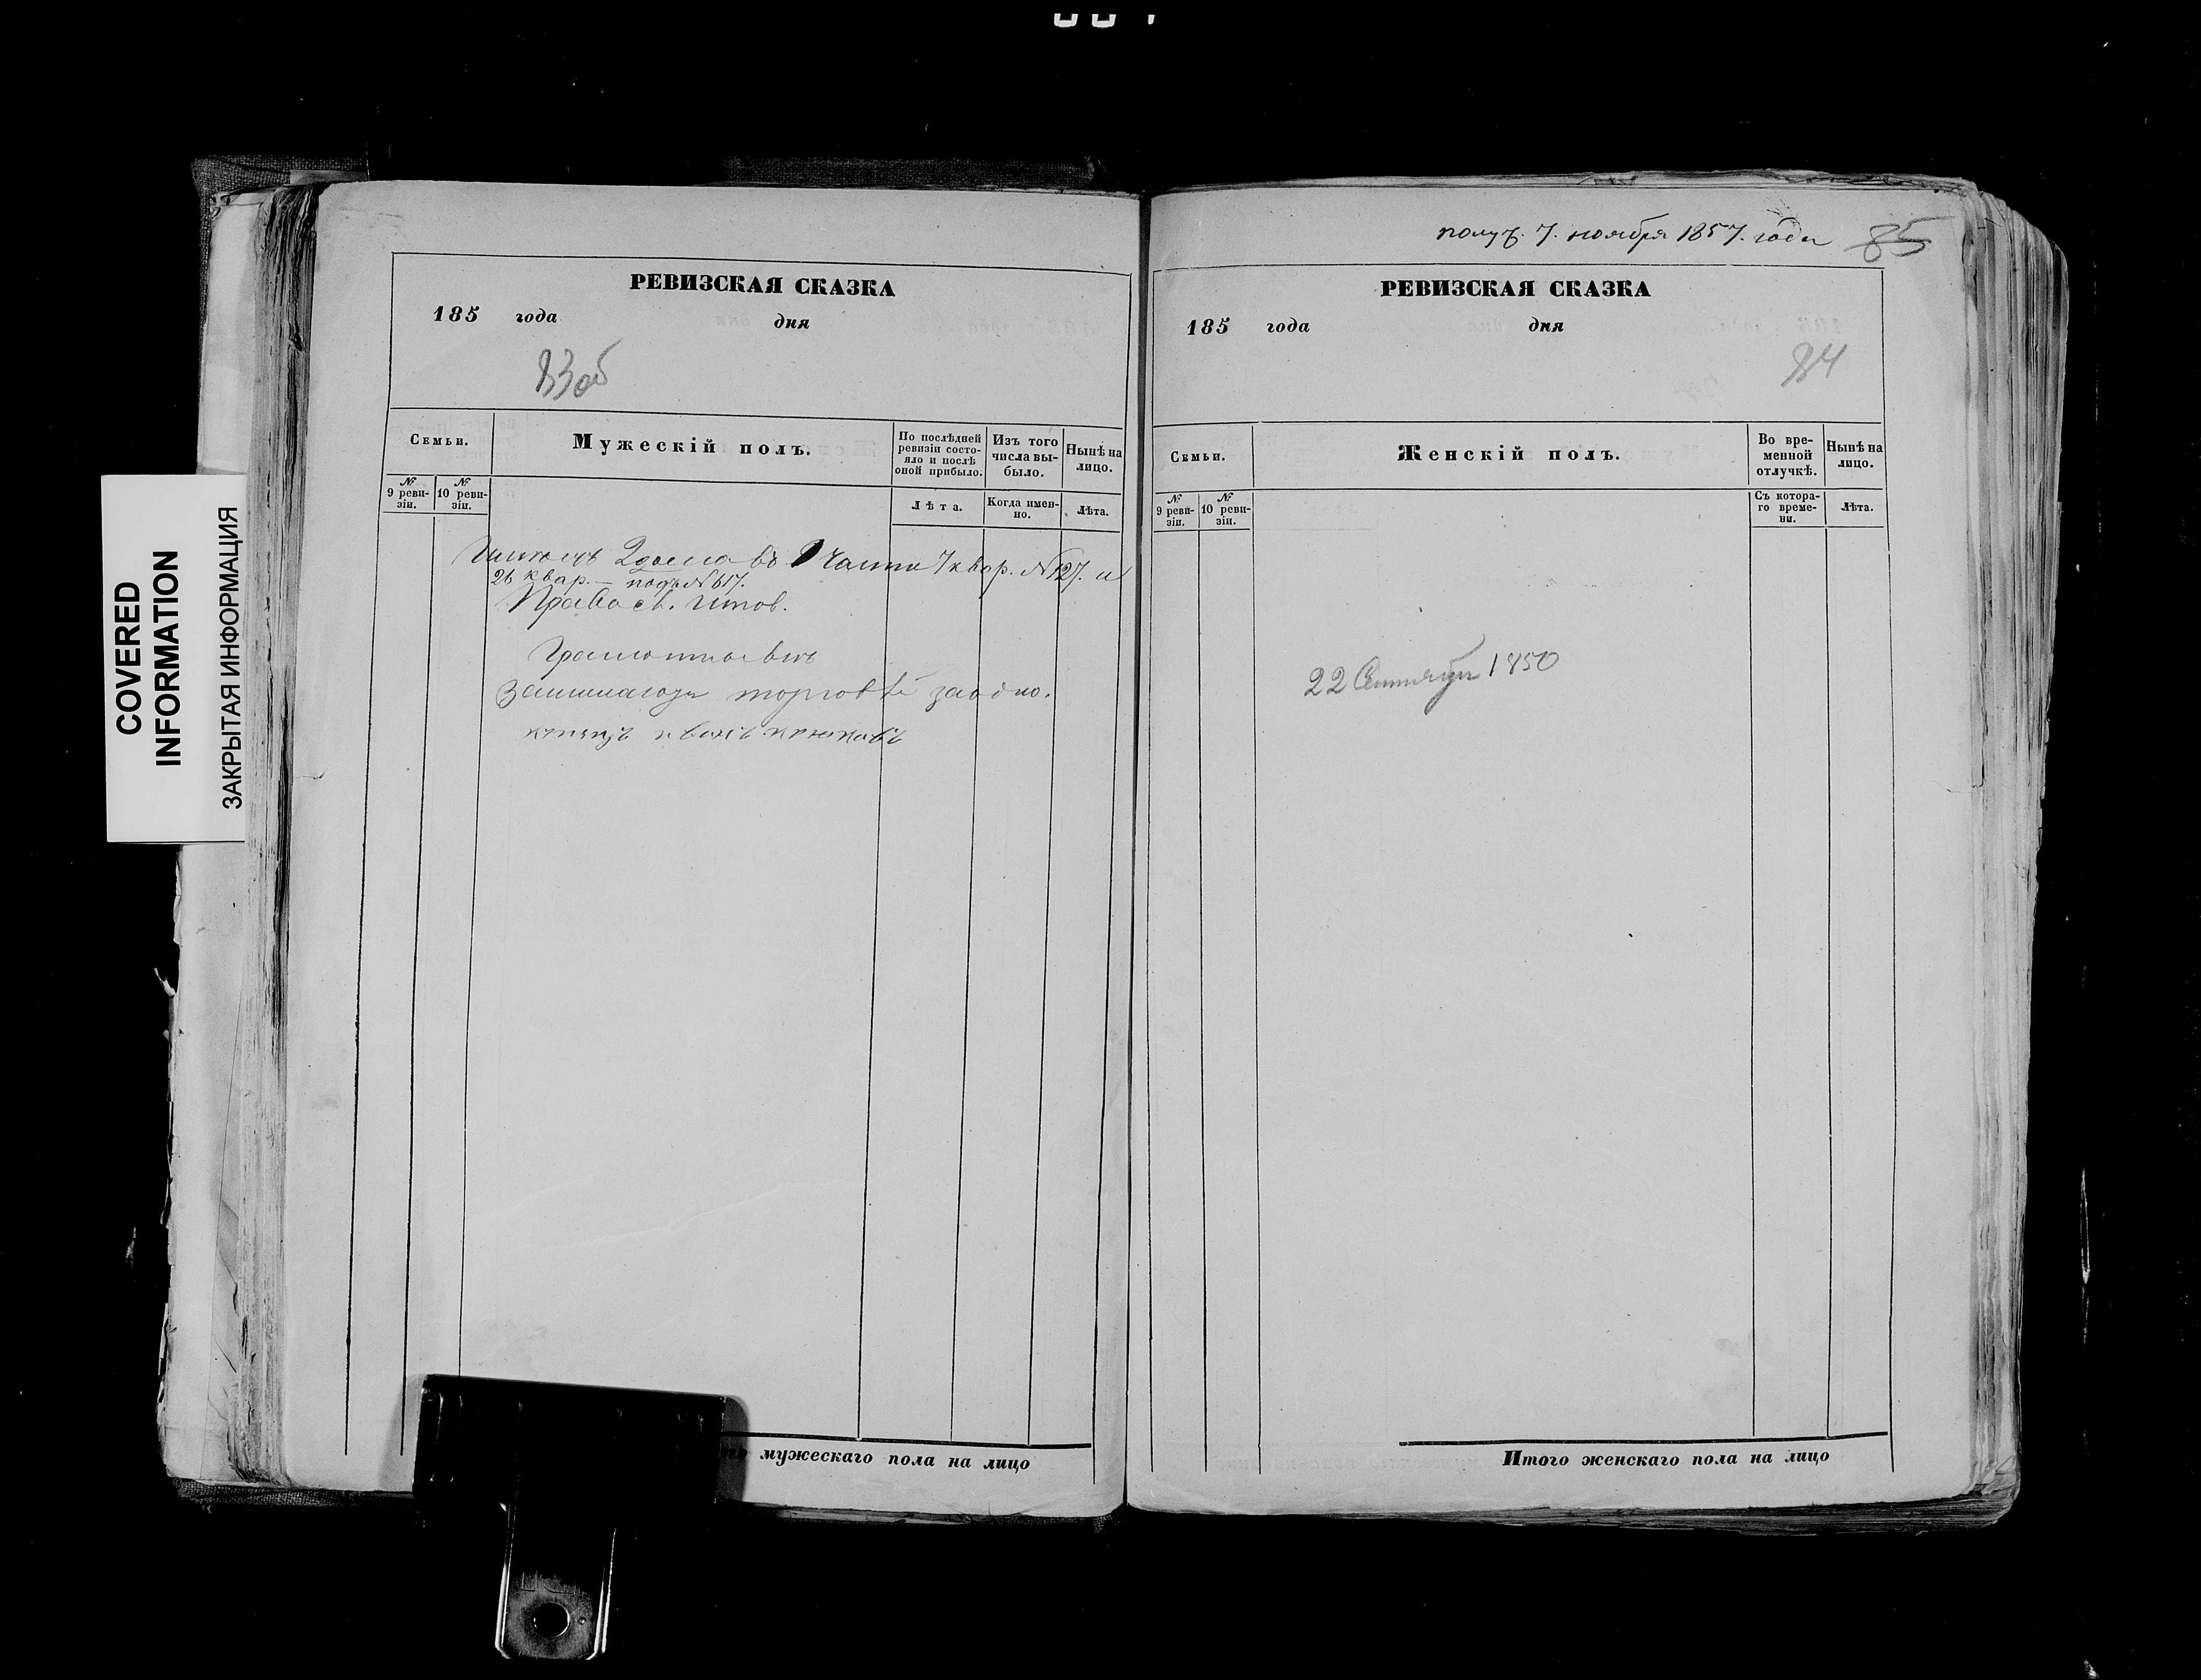 COVERED
INFORMATION
ЗАКРЫТАЯ ИНФОРМАЦИЯ
РЕВИЗСКАЯ СКАЗКА
185 года дня
83об
Семьи.
Мужескій полъ.
По послѣдней ревизіи состояло и послѣ оной прибыло.
Изъ того числа выбыло.
Нынѣ на лицо.
№ 9 ревизіи.
№ 10 ревизіи.
Лѣта.
Когда именно.
Лѣта.
въ части 7 квар. № 127. и
26 квар. — подъ № 617.
Права
торговлѣ
купецъ иванъ
мужескаго пола на лицо
получ. 7. ноября 1857. года 85
РЕВИЗСКАЯ СКАЗКА
185 года дня
84
Семьи.
Женскій полъ.
Во временной отлучкѣ.
Нынѣ на лицо.
№ 9 ревизіи.
№ 10 ревизіи.
Съ котораго времени.
Лѣта.
22 Сентября 1850
Итого женскаго пола на лицо